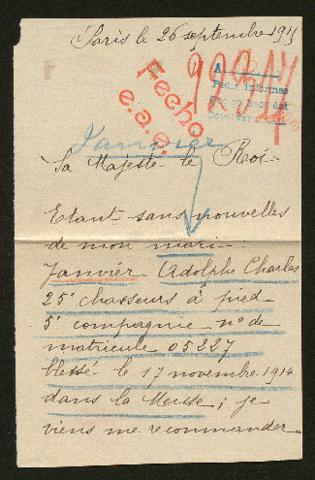 Paris le 26 septembre 1915
92214
Fecho
e.a.e.
Janvier
Sa Majesté le Roi.
Etant sans nouvelles
de mon mari.
Janvier Adolphe Charles
25e chasseurs à pied
5e compagnie nº de
matricule 05227
blessé le 17 novembre 1914
dans la Meuse; je
viens me recommander